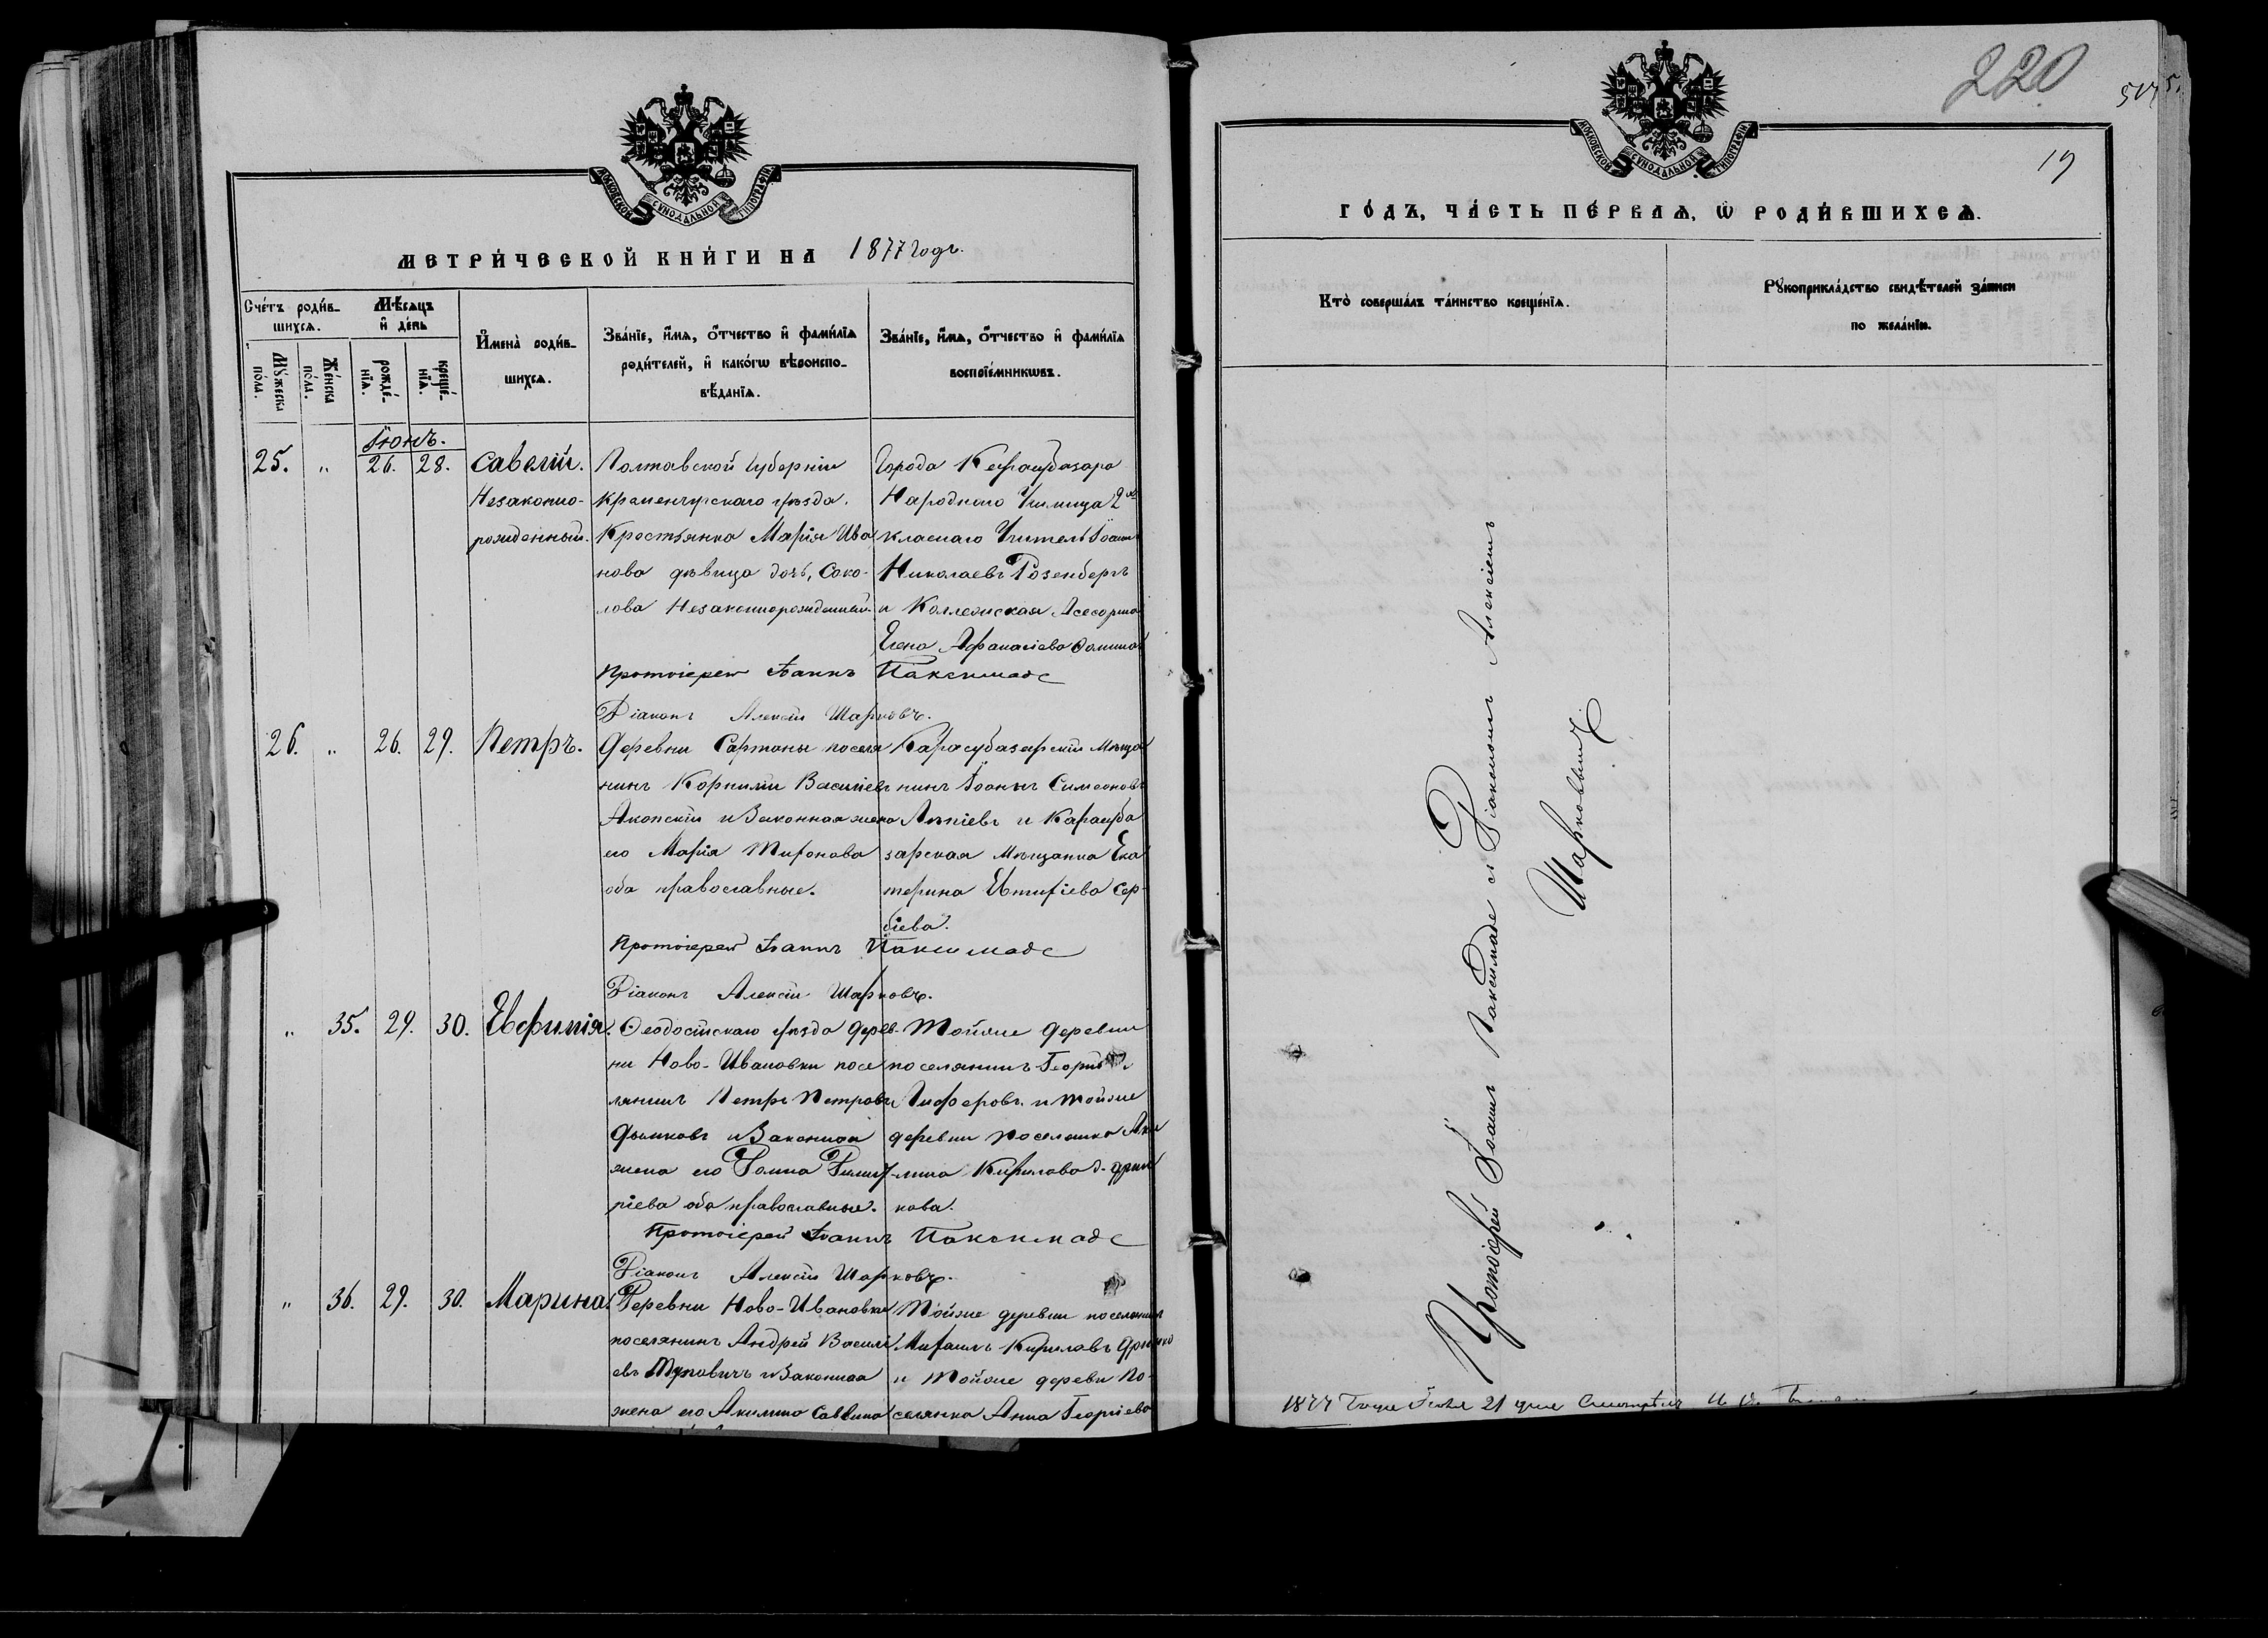 МОСКОВСКОЙ СѴНОДАЛЬНОЙ ТИПОГРАФІИ
МЕТРИ́ЧЕСКОЙ КНИ́ГИ НА 1877 годъ.
Сче́тъ роди́в-
шихся.
Мѣ́сяцъ
и҆ де́нь
Мꙋ́жеска
по́ла.
Же́нска
по́ла.
рожде́-
нїя.
креще́-
нїя.
И҆мена̀ роди́в-
шихся.
Зва́нїе, и҆́мя, ѻ҆́тчество и҆ фами́лїя
роди́телей, и҆ како́гѡ вѣроиспо-
вѣ́данїя.
Зва́нїе, и҆́мя, ѻ҆́тчество и҆ фами́лїя
воспрїе́мникѡвъ.
Іюнь.
25. " 26. 28. Савелій.
Незаконно-
рожденный.
Полтавской Губерніи
Кременчугскаго уѣзда.
Крестьянка Марія Ива
нова дѣвица дочь, Соко-
лова Незаконнорожденный
Города Карасубазара
Народнаго Училища 2го
класнаго Учитель Іоанн
Николаевъ Розенбергъ
и Коллежская Асесорша
Елена Афанасіева
Протоіерей Іоаннъ Паксимаде
Діаконъ Алексій Шарковъ.
26. " 26. 29. Петръ.
Деревни Сартаны поселя
нинъ Корнилій Василіевъ
и Законная жена
его Марія Миронова
оба православные.
Карасубазарскій Мѣща
нинъ Іоаннъ Симеоновъ
и Карасуба
зарская Мѣщанка Ека
терина Евтифіева Сер-
біева.
Протоіерей Іоаннъ Паксимаде
Діаконъ Алексій Шарковъ.
" 35. 29. 30. Евфимія.
Ѳеодосійскаго уѣзда дерев-
ни Ново-Ивановки посе
лянинъ Петръ Петровъ
и Законная
жена его
оба православные.
Тойже деревни
поселянинъ Георгій
и тойже
деревни поселянка Аки
лина Кирилова
кова.
Протоіерей Іоаннъ Паксимаде
Діаконъ Алексій Шарковъ.
" 36. 29. 30. Марина.
Деревни Ново-Ивановки
поселянинъ Андрей Василі
евъ и Законная
жена его Акилина Саввина
Тойже деревни поселянинъ
Михаилъ Кириловъ
и Тойже деревни По-
селянка Анна Георгіева
220
19
МОСКОВСКОЙ СѴНОДАЛЬНОЙ ТИПОГРАФІИ
ГО́ДЪ, ЧА́СТЬ ПЕ́РВАЯ, Ѡ҆ РОДИ́ВШИХСЯ.
Кто̀ соверша́лъ та́инство креще́нїя.
Рꙋкоприкла́дство свидѣ́телей за́писи
по жела́нїю.
Протоіерей Іоаннъ Паксимаде съ Діакономъ Алексіемъ
Шарковымъ
1877 Года Іюля 21 дня Смотрѣлъ